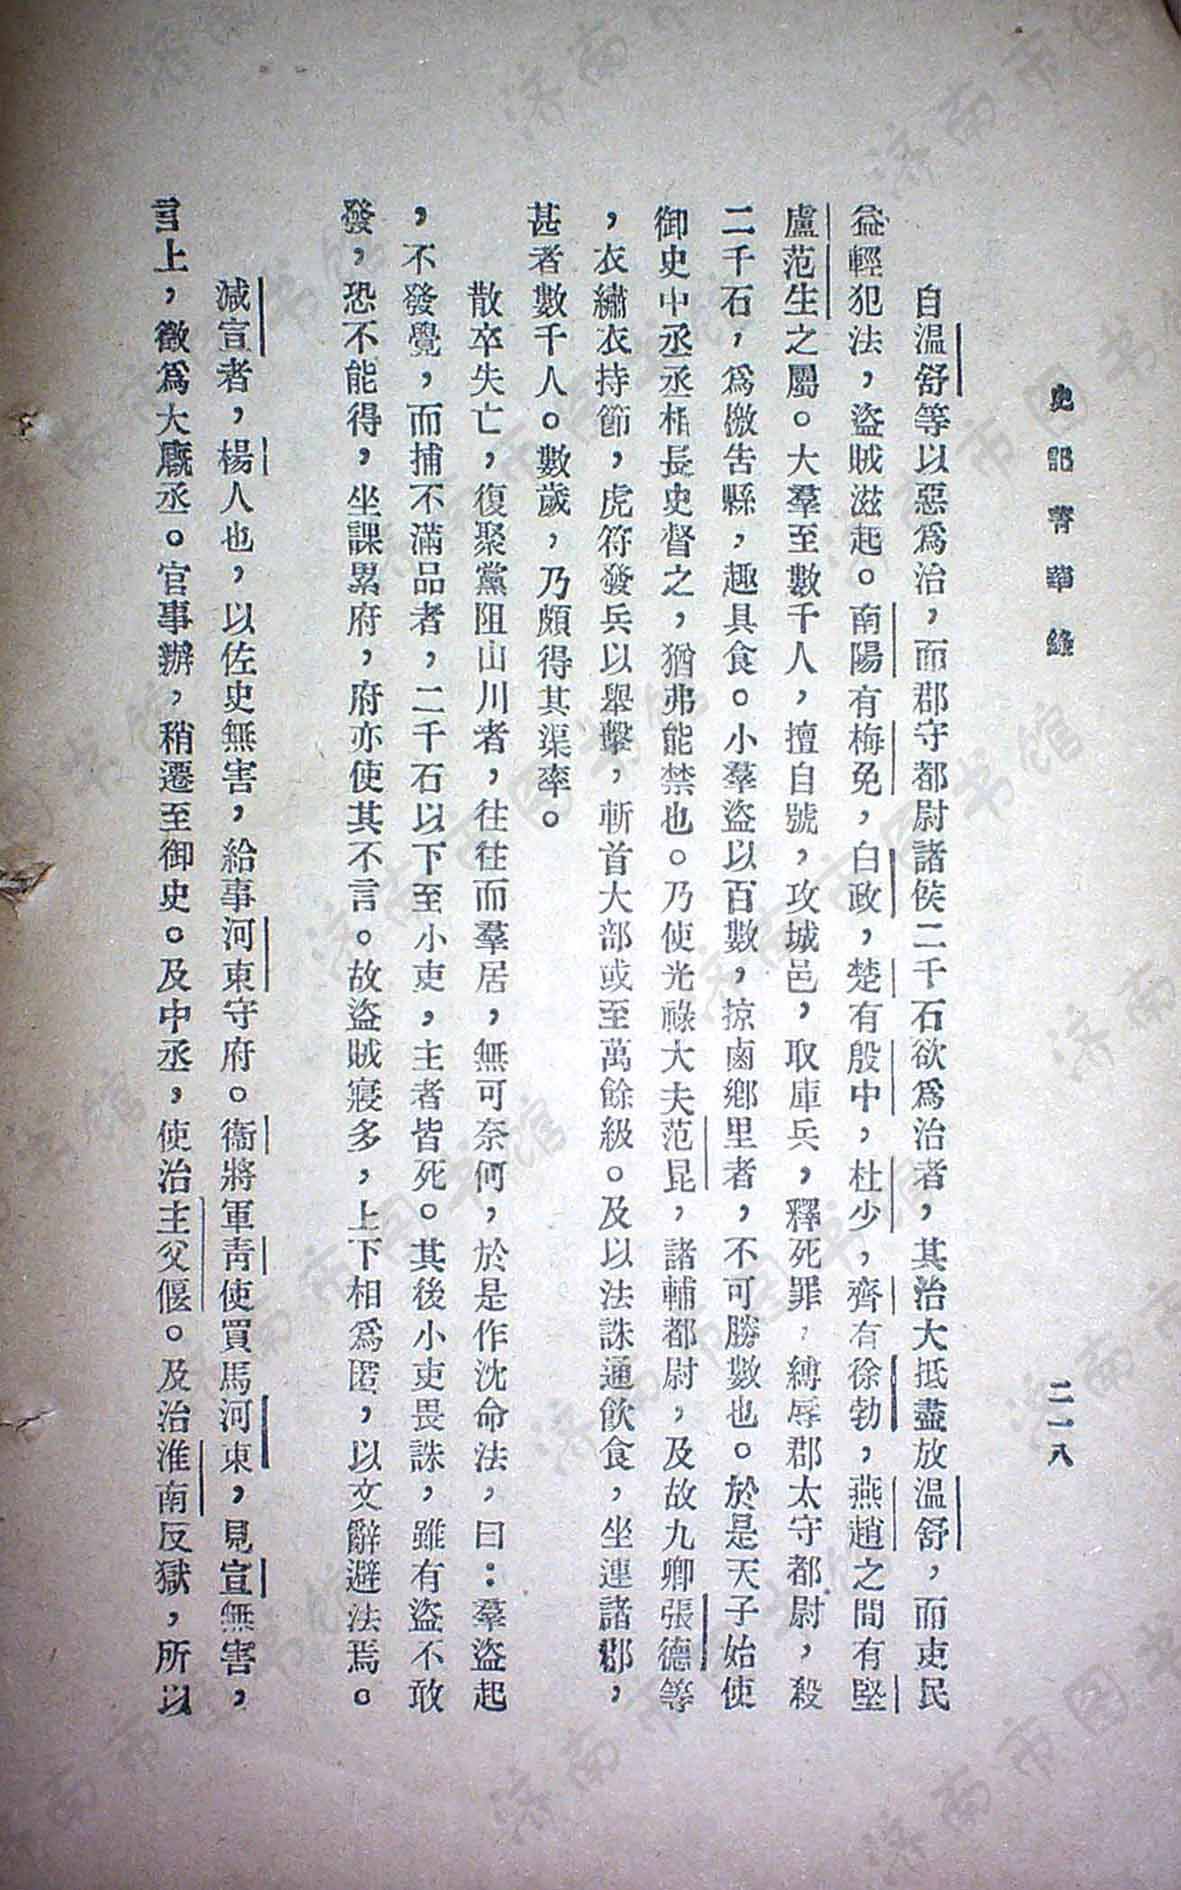 史記菁華錄
二一八
自溫舒等以惡爲治，而郡守都尉諸侯二千石欲爲治者，其治大抵盡放溫舒，而吏民
益輕犯法，盜賊滋起。南陽有梅免，白政，楚有殷中，杜少，齊有徐勃，燕趙之間有堅
盧范生之屬。大羣至數千人，擅自號，攻城邑，取庫兵，釋死罪，縛辱郡太守都尉，殺
二千石，爲檄告縣，趣具食。小羣盜以百數，掠鹵鄉里者，不可勝數也。於是天子始使
御史中丞丞相長史督之，猶弗能禁也。乃使光祿大夫范昆，諸輔都尉，及故九卿張德等
，衣繡衣持節，虎符發兵以舉擊，斬首大部或至萬餘級。及以法誅通飲食，坐連諸郡，
甚者數千人。數歲，乃頗得其渠率。
散卒失亡，復聚黨阻山川者，往往而羣居，無可奈何，於是作沈命法，曰：羣盜起
，不發覺，而捕不滿品者，二千石以下至小吏，主者皆死。其後小吏畏誅，雖有盜不敢
發，恐不能得，坐課累府，府亦使其不言。故盜賊寖多，上下相爲匿，以文辭避法焉。
減宣者，楊人也，以佐史無害，給事河東守府。衞將軍青使買馬河東，見宣無害，
言上，徵爲大廄丞。官事辦，稍遷至御史。及中丞，使治主父偃。及治淮南反獄，所以
濟南市图书馆